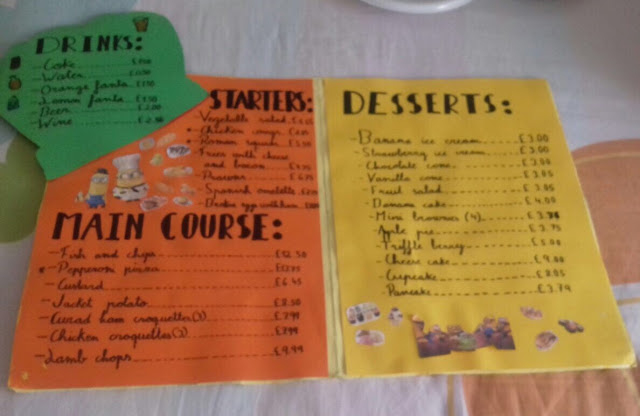 DRINKS:
- Coke £1.50
- Water
- Orange fanta £1.50
- Lemon fanta £1.50
- Beer £2.00
- Wine £2.50
STARTERS:
- Vegetable salad
- Chicken wings
- Roman squids £3.50
- Fries with cheese
and bacon
- Prawns £6.75
- Spanish omelette
- Broken eggs with ham
MAIN COURSE:
- Fish and chips £12.50
- Pepperoni pizza
- Custard £6.45
- Jacket potato £8.50
- Curad ham croquettes £7.99
- Chicken croquettes £7.99
- Lamb chops £9.99
DESSERTS:
- Banana ice cream £3.00
- Strawberry ice cream £3.00
- Chocolate cone £3.00
- Vanilla cone £3.05
- Fruit salad £3.06
- Banana cake £4.00
- Mini brownies (4)
- Apple pie £3.75
- Truffle berry £5.00
- Cheese cake £9.00
- Cupcake £8.05
- Pancake £3.79